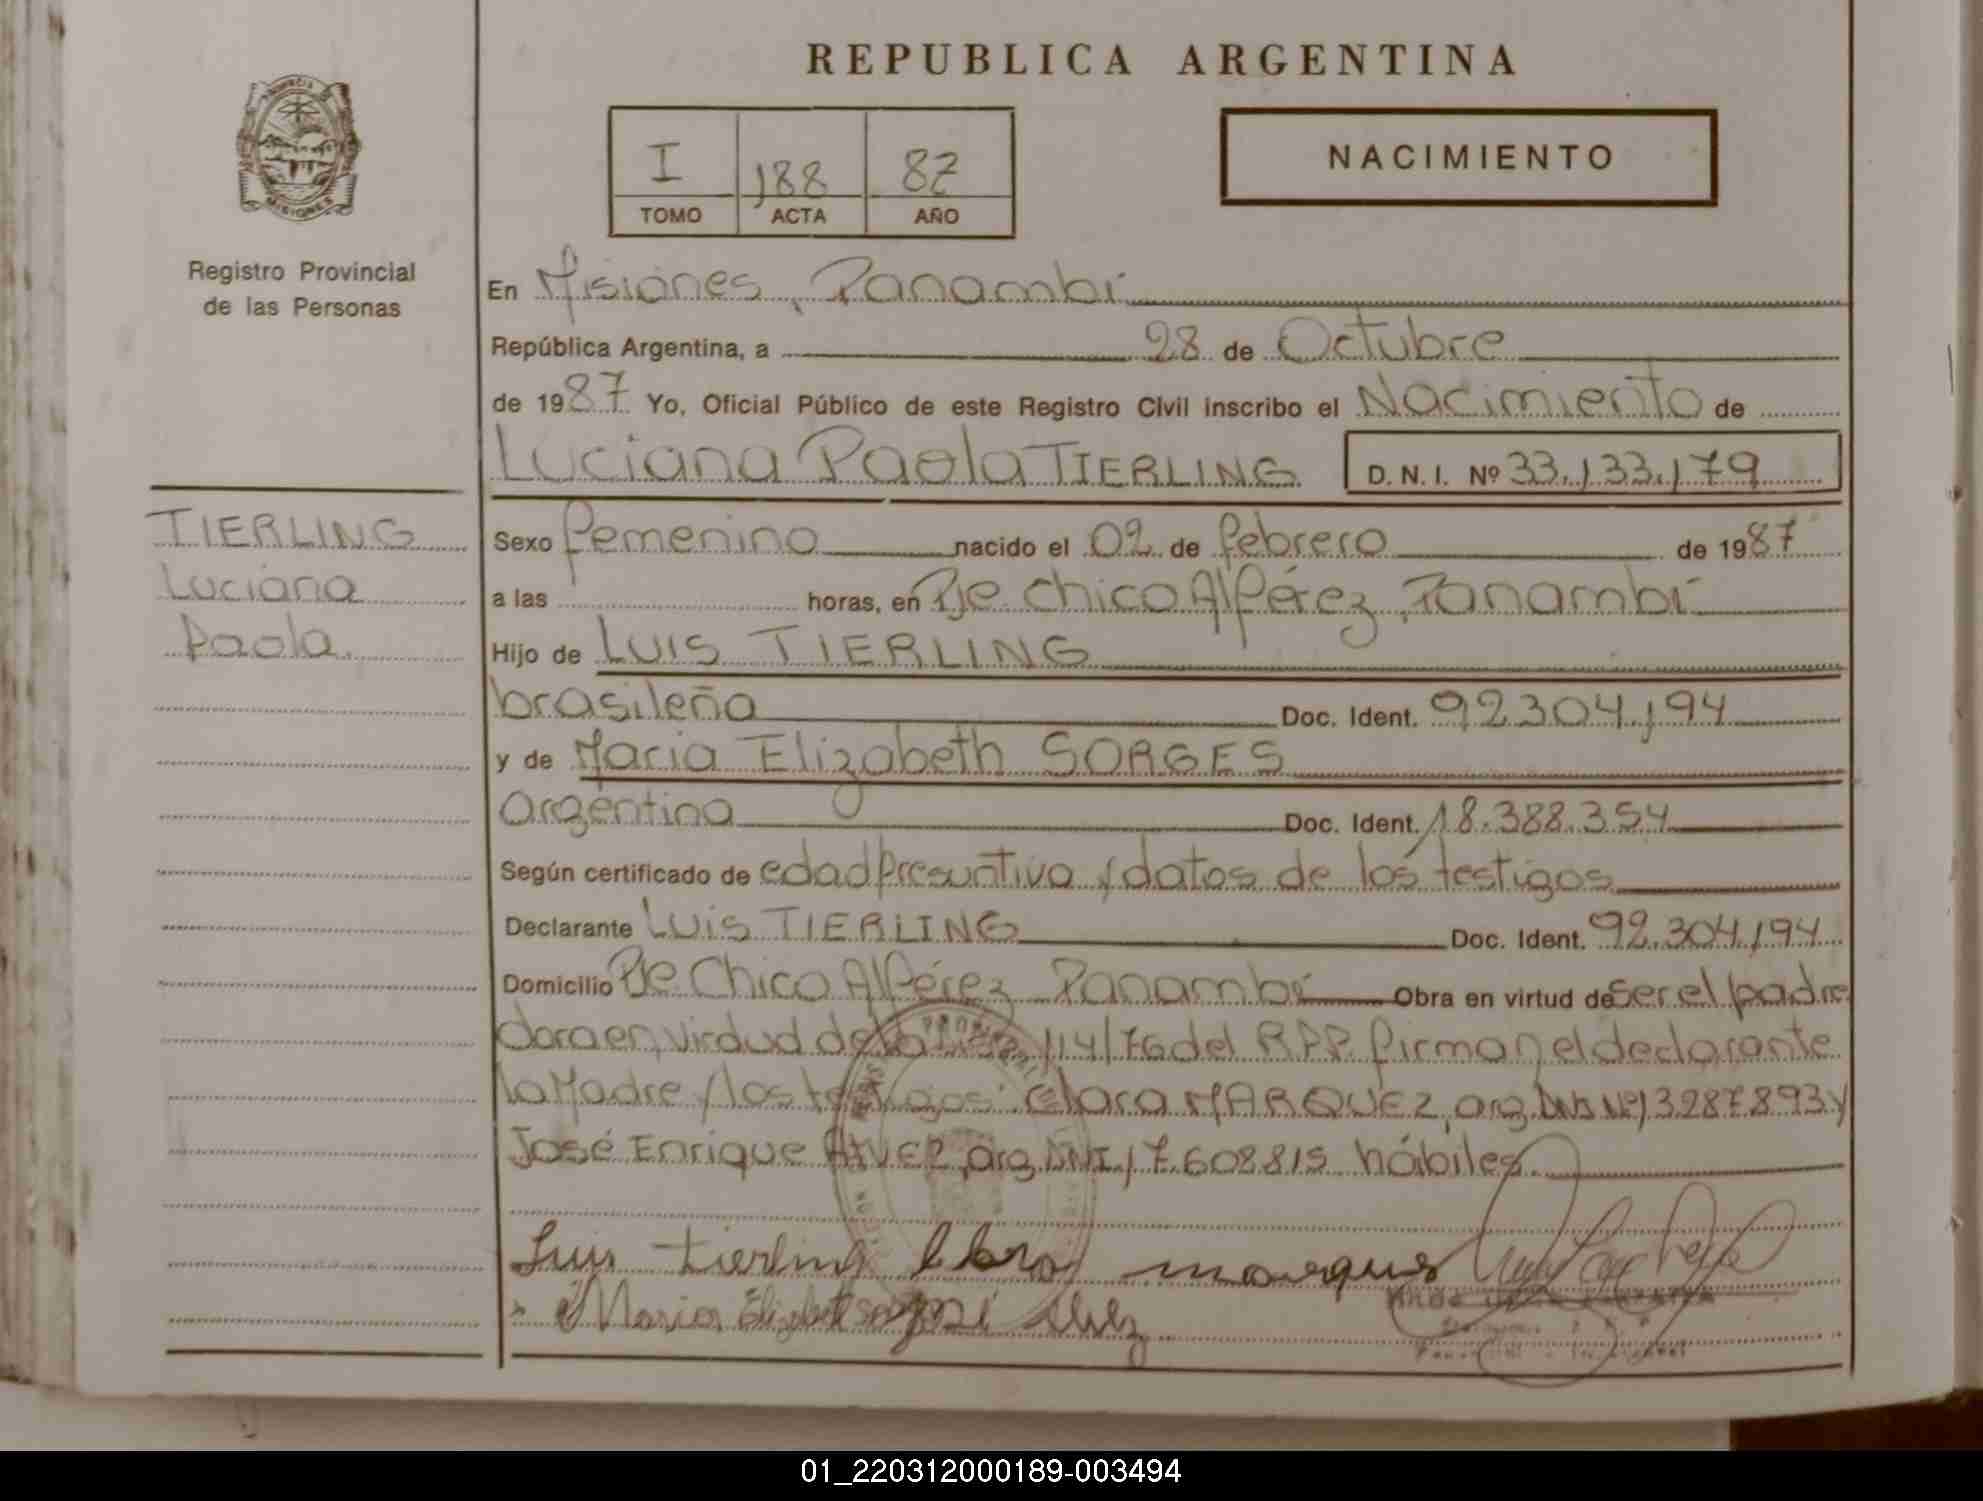 REPUBLICA ARGENTINA
PROVINCIA DE MISIONES
I 188 87
TOMO ACTA AÑO
NACIMIENTO
Registro Provincial
de las Personas
En Misiones, Panambí
República Argentina, a 28 de Octubre
de 1987 Yo, Oficial Público de este Registro Civil inscribo el Nacimiento de
Luciana Paola TIERLING D. N. I. Nº 33.133.179
TIERLING
Luciana
Paola.
Sexo femenino nacido el 02 de febrero de 1987
a las horas, en Pje. Chico Alférez, Panambí
Hijo de LUIS TIERLING
brasileña Doc. Ident. 92.304.194
y de Maria Elizabeth SORGES
argentina Doc. Ident. 18.388.354
Según certificado de edad presuntiva y datos de los testigos
Declarante LUIS TIERLING Doc. Ident. 92.304.194
Domicilio Pje Chico Alférez Panambí Obra en virtud de ser el padre
en virdud de la 114/76 del RPP. firman el declarante
la Madre y los testigos: Clara MARQUEZ, arg. DNI Nº 13287893 y
José Enrique arg. DNI 17.608815 hábiles.
Luis tierling Clara marques
Maria Elizabet
01_220312000189-003494